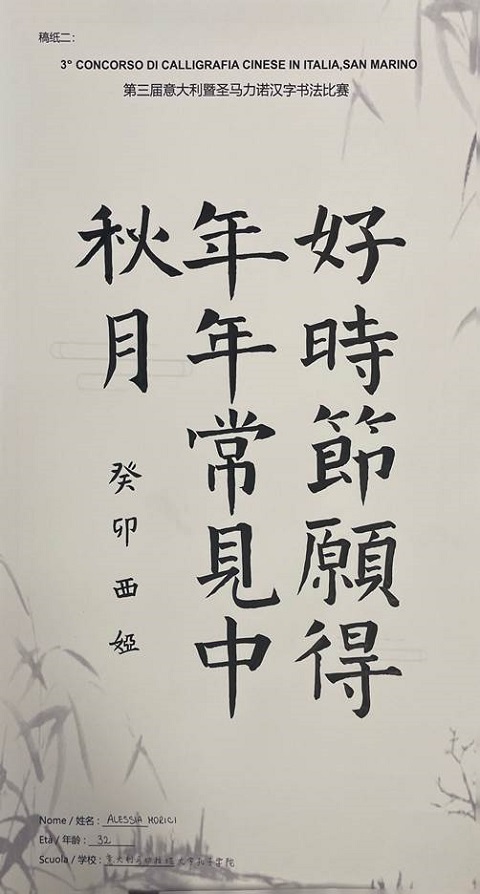 稿纸二：
3° CONCORSO DI CALLIGRAFIA CINESE IN ITALIA,SAN MARINO
第三届意大利暨圣马力诺汉字书法比赛
好時節願得
年年常見中
秋月
癸卯西婭
Nome / 姓名：ALESSIA MORICI
Età / 年龄：32
Scuola / 学校：意大利 大学孔子学院